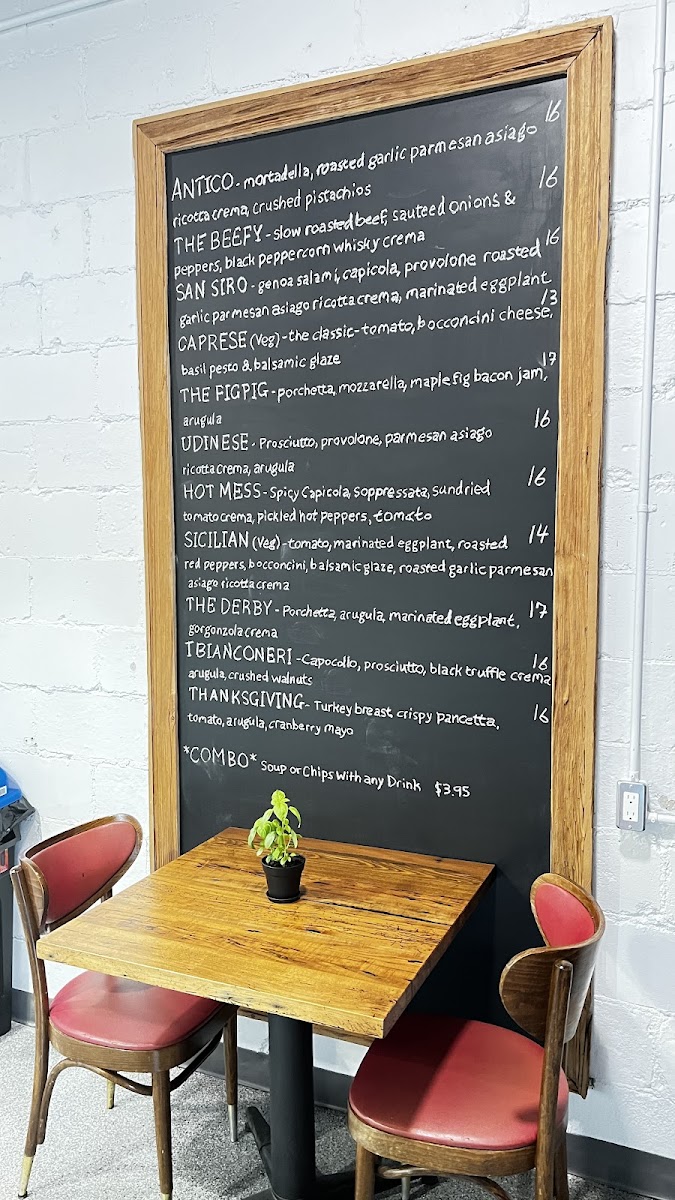 ANTICO - mortadella, roasted garlic parmesan asiago 16
ricotta crema, crushed pistachios
THE BEEFY - slow roasted beef, sauteed onions & 16
peppers, black peppercorn whisky crema
SAN SIRO - genoa salami, capicola, provolone roasted 16
garlic parmesan asiago ricotta crema, marinated eggplant
CAPRESE (Veg) - the classic - tomato, bocconcini cheese, 13
basil pesto & balsamic glaze
THE FIGPIG - porchetta, mozzarella, maple fig bacon jam, 17
arugula
UDINESE - Prosciutto, provolone, parmesan asiago 16
ricotta crema, arugula
HOT MESS - Spicy Capicola, soppressata, sundried 16
tomato crema, pickled hot peppers, tomato
SICILIAN (Veg) - tomato, marinated eggplant, roasted 14
red peppers, bocconcini, balsamic glaze, roasted garlic parmesan
asiago ricotta crema
THE DERBY - Porchetta, arugula, marinated eggplant, 17
gorgonzola crema
I BIANCONERI - Capocollo, prosciutto, black truffle crema 16
arugula, crushed walnuts
THANKSGIVING - Turkey breast, crispy pancetta, 16
tomato, arugula, cranberry mayo
*COMBO* Soup or Chips with any Drink $3.95